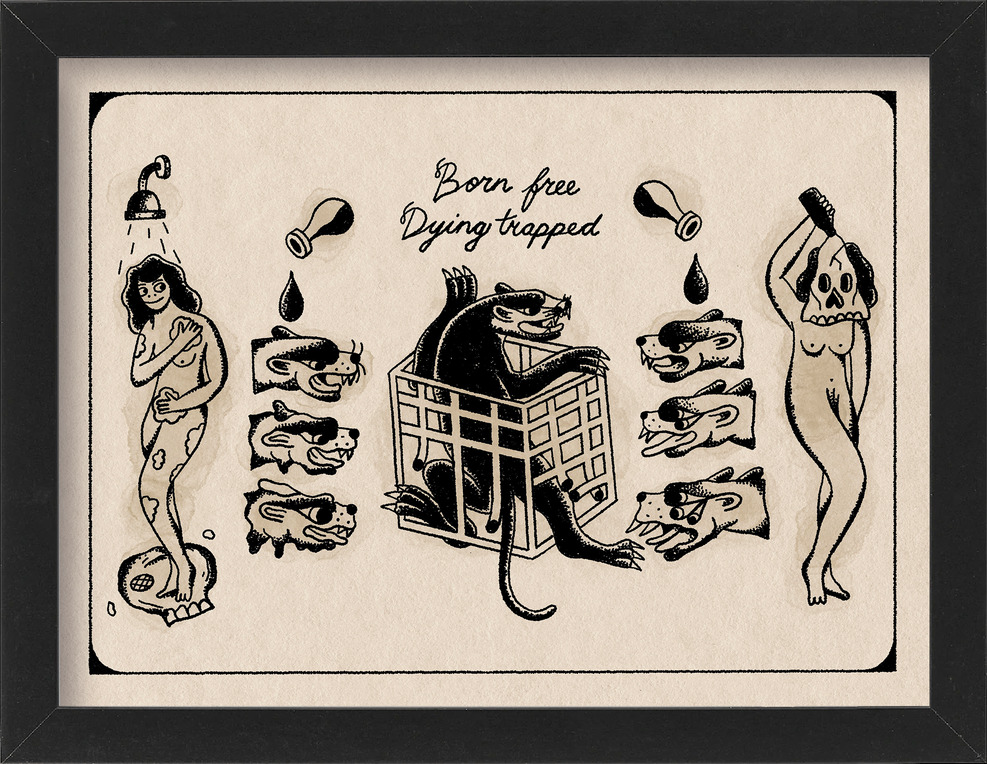 Born free
Dying trapped